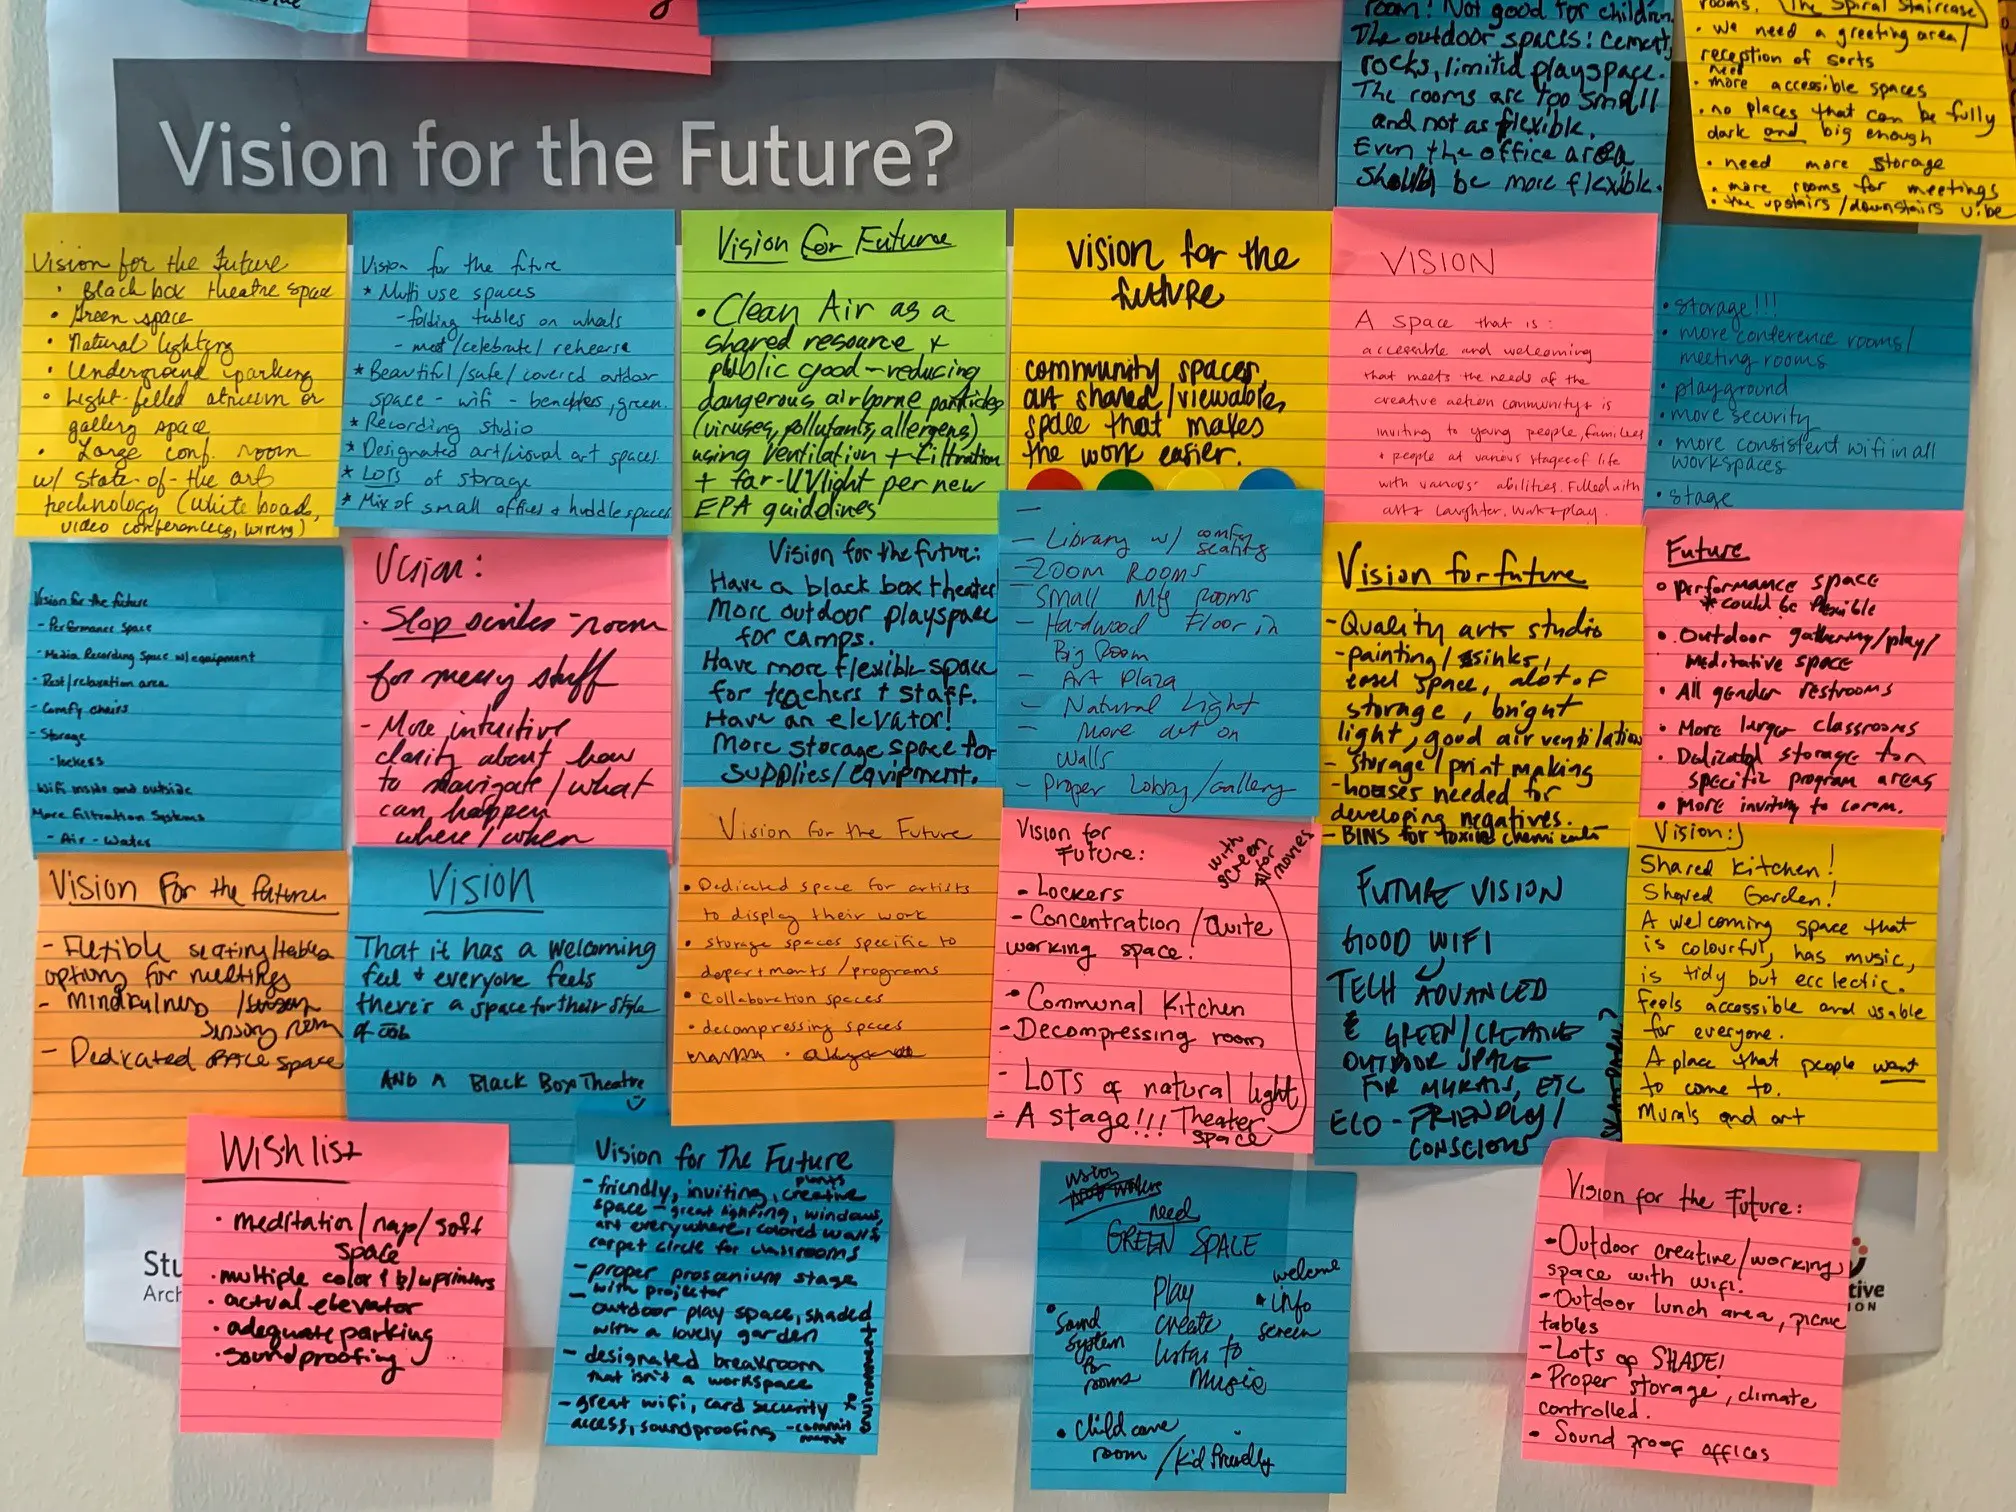 room! Not good for children.
The outdoor spaces: cement,
rocks, limited playspace.
The rooms are too small
and not as flexible.
Even the office area
should be more flexible.
rooms. (The Spiral Staircase)
• we need a greeting area/
reception of sorts
need
• more accessible spaces
• no places that can be fully
dark and big enough
• need more storage
• more rooms for meetings
• the upstairs/downstairs vibe
Vision for the Future?
Vision for the Future
• Black box theatre space
• Green space
• Natural lighting
• Underground parking
• Light-filled atrium or
gallery space
• Large conf. room
w/ state-of-the art
technology (white boards,
video conferences, wiring)
Vision for the future
* Multi use spaces
- folding tables on wheels
- meet/celebrate/rehearse
* Beautiful/safe/covered outdoor
space - wifi - benches, green.
* Recording studio
* Designated art/visual art spaces.
* LOTS of storage
* Mix of small offices + huddle spaces
Vision for Future
• Clean Air as a
shared resource +
public good - reducing
dangerous airborne particles
(viruses, pollutants, allergens)
using ventilation + filtration
+ far-UV light per new
EPA guidelines
Vision for the
future
community spaces,
art shared/viewable,
space that makes
the work easier.
VISION
A space that is:
accessible and welcoming
that meets the needs of the
creative action community + is
inviting to young people, families
+ people at various stages of life
with various abilities. Filled with
art + laughter. work + play.
• storage!!!
• more conference rooms/
meeting rooms
• playground
• more security
• more consistent wifi in all
workspaces
• stage
Vision for the future
- Performance Space
- Media Recording Space w/ equipment
- Rest/relaxation area
- Comfy chairs
- Storage
- lockers
Wifi inside and outside
More filtration systems
- Air - Water
Vision:
• Slop room
for messy stuff
- More intuitive
clarity about how
to navigate/what
can happen
where/when
Vision for the future:
Have a black box theater
More outdoor playspace
for camps.
Have more flexible space
for teachers + staff.
Have an elevator!
More storage space for
supplies/equipment.
—
- Library w/ comfy
seating
- Zoom Rooms
- Small Mtg rooms
- Hardwood Floor in
Big Room
- Art Plaza
- Natural Light
- More art on
walls
- Proper Lobby/Gallery
Vision for future
- Quality arts studio
- painting/sinks,
easel space, alot of
storage, bright
light, good air ventilation
- storage/print making
- houses needed for
developing negatives.
- BINS for toxic chemicals
Future
• Performance space
* could be flexible
• Outdoor gathering/play/
meditative space
• All gender restrooms
• More larger classrooms
• Dedicated storage for
specific program areas
• More inviting to comm.
Vision For the future
- Flexible seating/tables
options for meetings
- Mindfulness /
sensory room
- Dedicated space
VISION
That it has a welcoming
feel + everyone feels
there's a space for their style
of job
AND A Black Box Theatre
Vision for the Future
• Dedicated space for artists
to display their work
• storage spaces specific to
departments/programs
• collaboration spaces
• decompressing spaces
Vision for
Future:
with
screen
for
movies
- Lockers
- Concentration/Quite
working space.
• Communal Kitchen
- Decompressing room
- LOTS of natural light
- A stage!!! Theater
space
FUTURE VISION
GOOD WIFI
TECH ADVANCED
& GREEN/CREATIVE
OUTDOOR SPACE
FOR MURALS, ETC
ECO-FRIENDLY/
CONSCIOUS
Vision:)
Shared Kitchen!
Shared Garden!
A welcoming space that
is colourful, has music,
is tidy but ecclectic.
Feels accessible and usable
for everyone.
A place that people want
to come to.
Murals and art
Wish list
• meditation/nap/soft
space
• multiple color & b/w printers
• actual elevator
• adequate parking
• soundproofing
Vision for The Future
plants
- friendly, inviting, creative
space - great lighting, windows,
art everywhere, colored walls
carpet circle for classrooms
- proper proscenium stage
with projector
- outdoor play space, shaded
with a lovely garden
- designated breakroom
that isn't a workspace
- great wifi, card security
access, soundproofing - commit
ment
to
environment
need
GREEN SPACE
Play
create
listen to
Music
welcome
* info
screen
• Sound
system
for
rooms
• Child care
room/Kid friendly
Vision for the Future:
- Outdoor creative/working
space with wifi.
- Outdoor lunch area, picnic
tables
- Lots of SHADE!
• Proper storage, climate
controlled.
• Sound proof offices
Stu
Arch
tive
ION